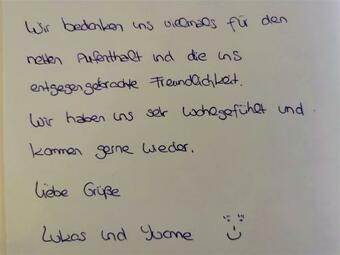 Wir bedanken uns vielmals für den
netten Aufenthalt und die uns
entgegengebrachte Freundlichkeit.
Wir haben uns sehr wohlgefühlt und
kommen gerne wieder.
Liebe Grüße
Lukas und Yvonne